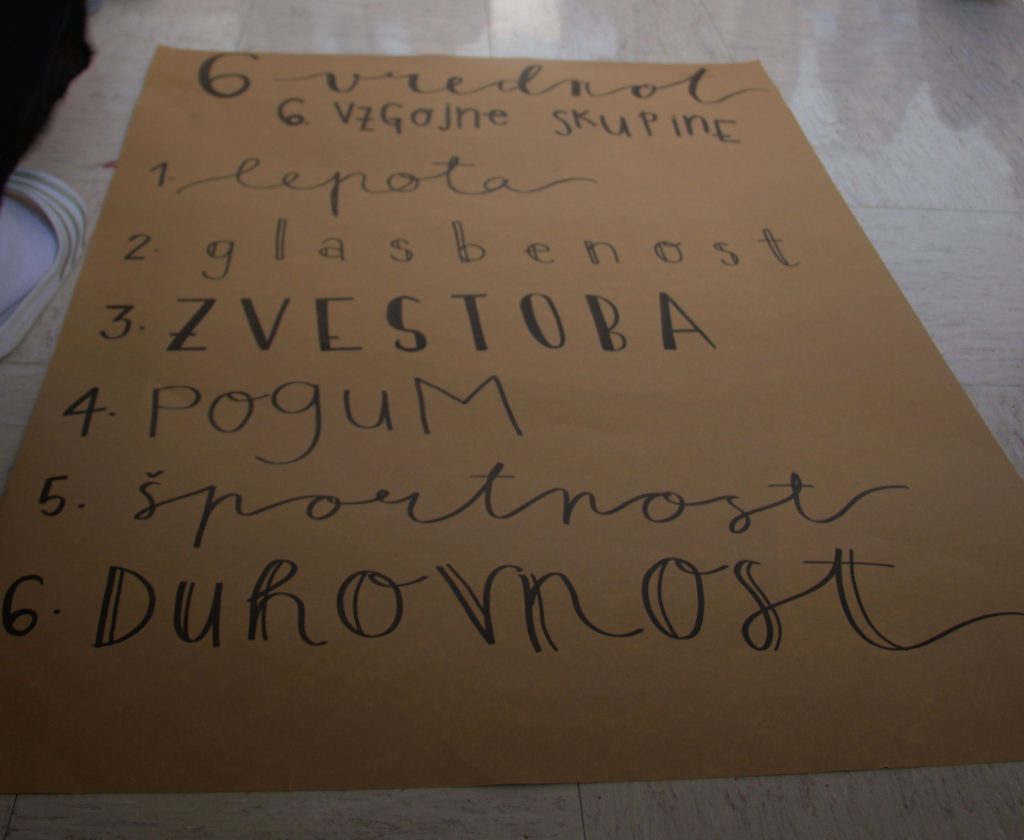 6 vrednot
6. VZGOJNE SKUPINE
1. lepota
2. glasbenost
3. ZVESTOBA
4. POGUM
5. športnost
6. DUHOVNOST